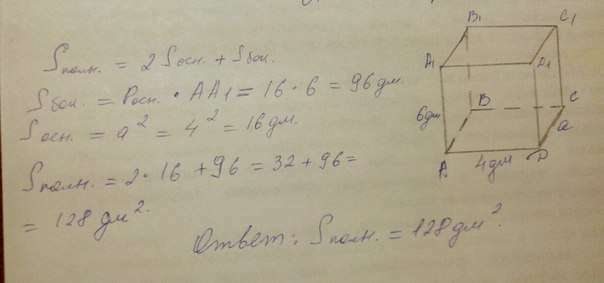 Sполн. = 2 Sосн. + Sбок.
Sбок. = Pосн. • AA₁ = 16 • 6 = 96 дм.
Sосн. = a² = 4² = 16 дм.
Sполн. = 2 • 16 + 96 = 32 + 96 =
= 128 дм².
Ответ: Sполн. = 128 дм².
B₁
C₁
A₁
D₁
6дм
B
C
a
A
4дм
D